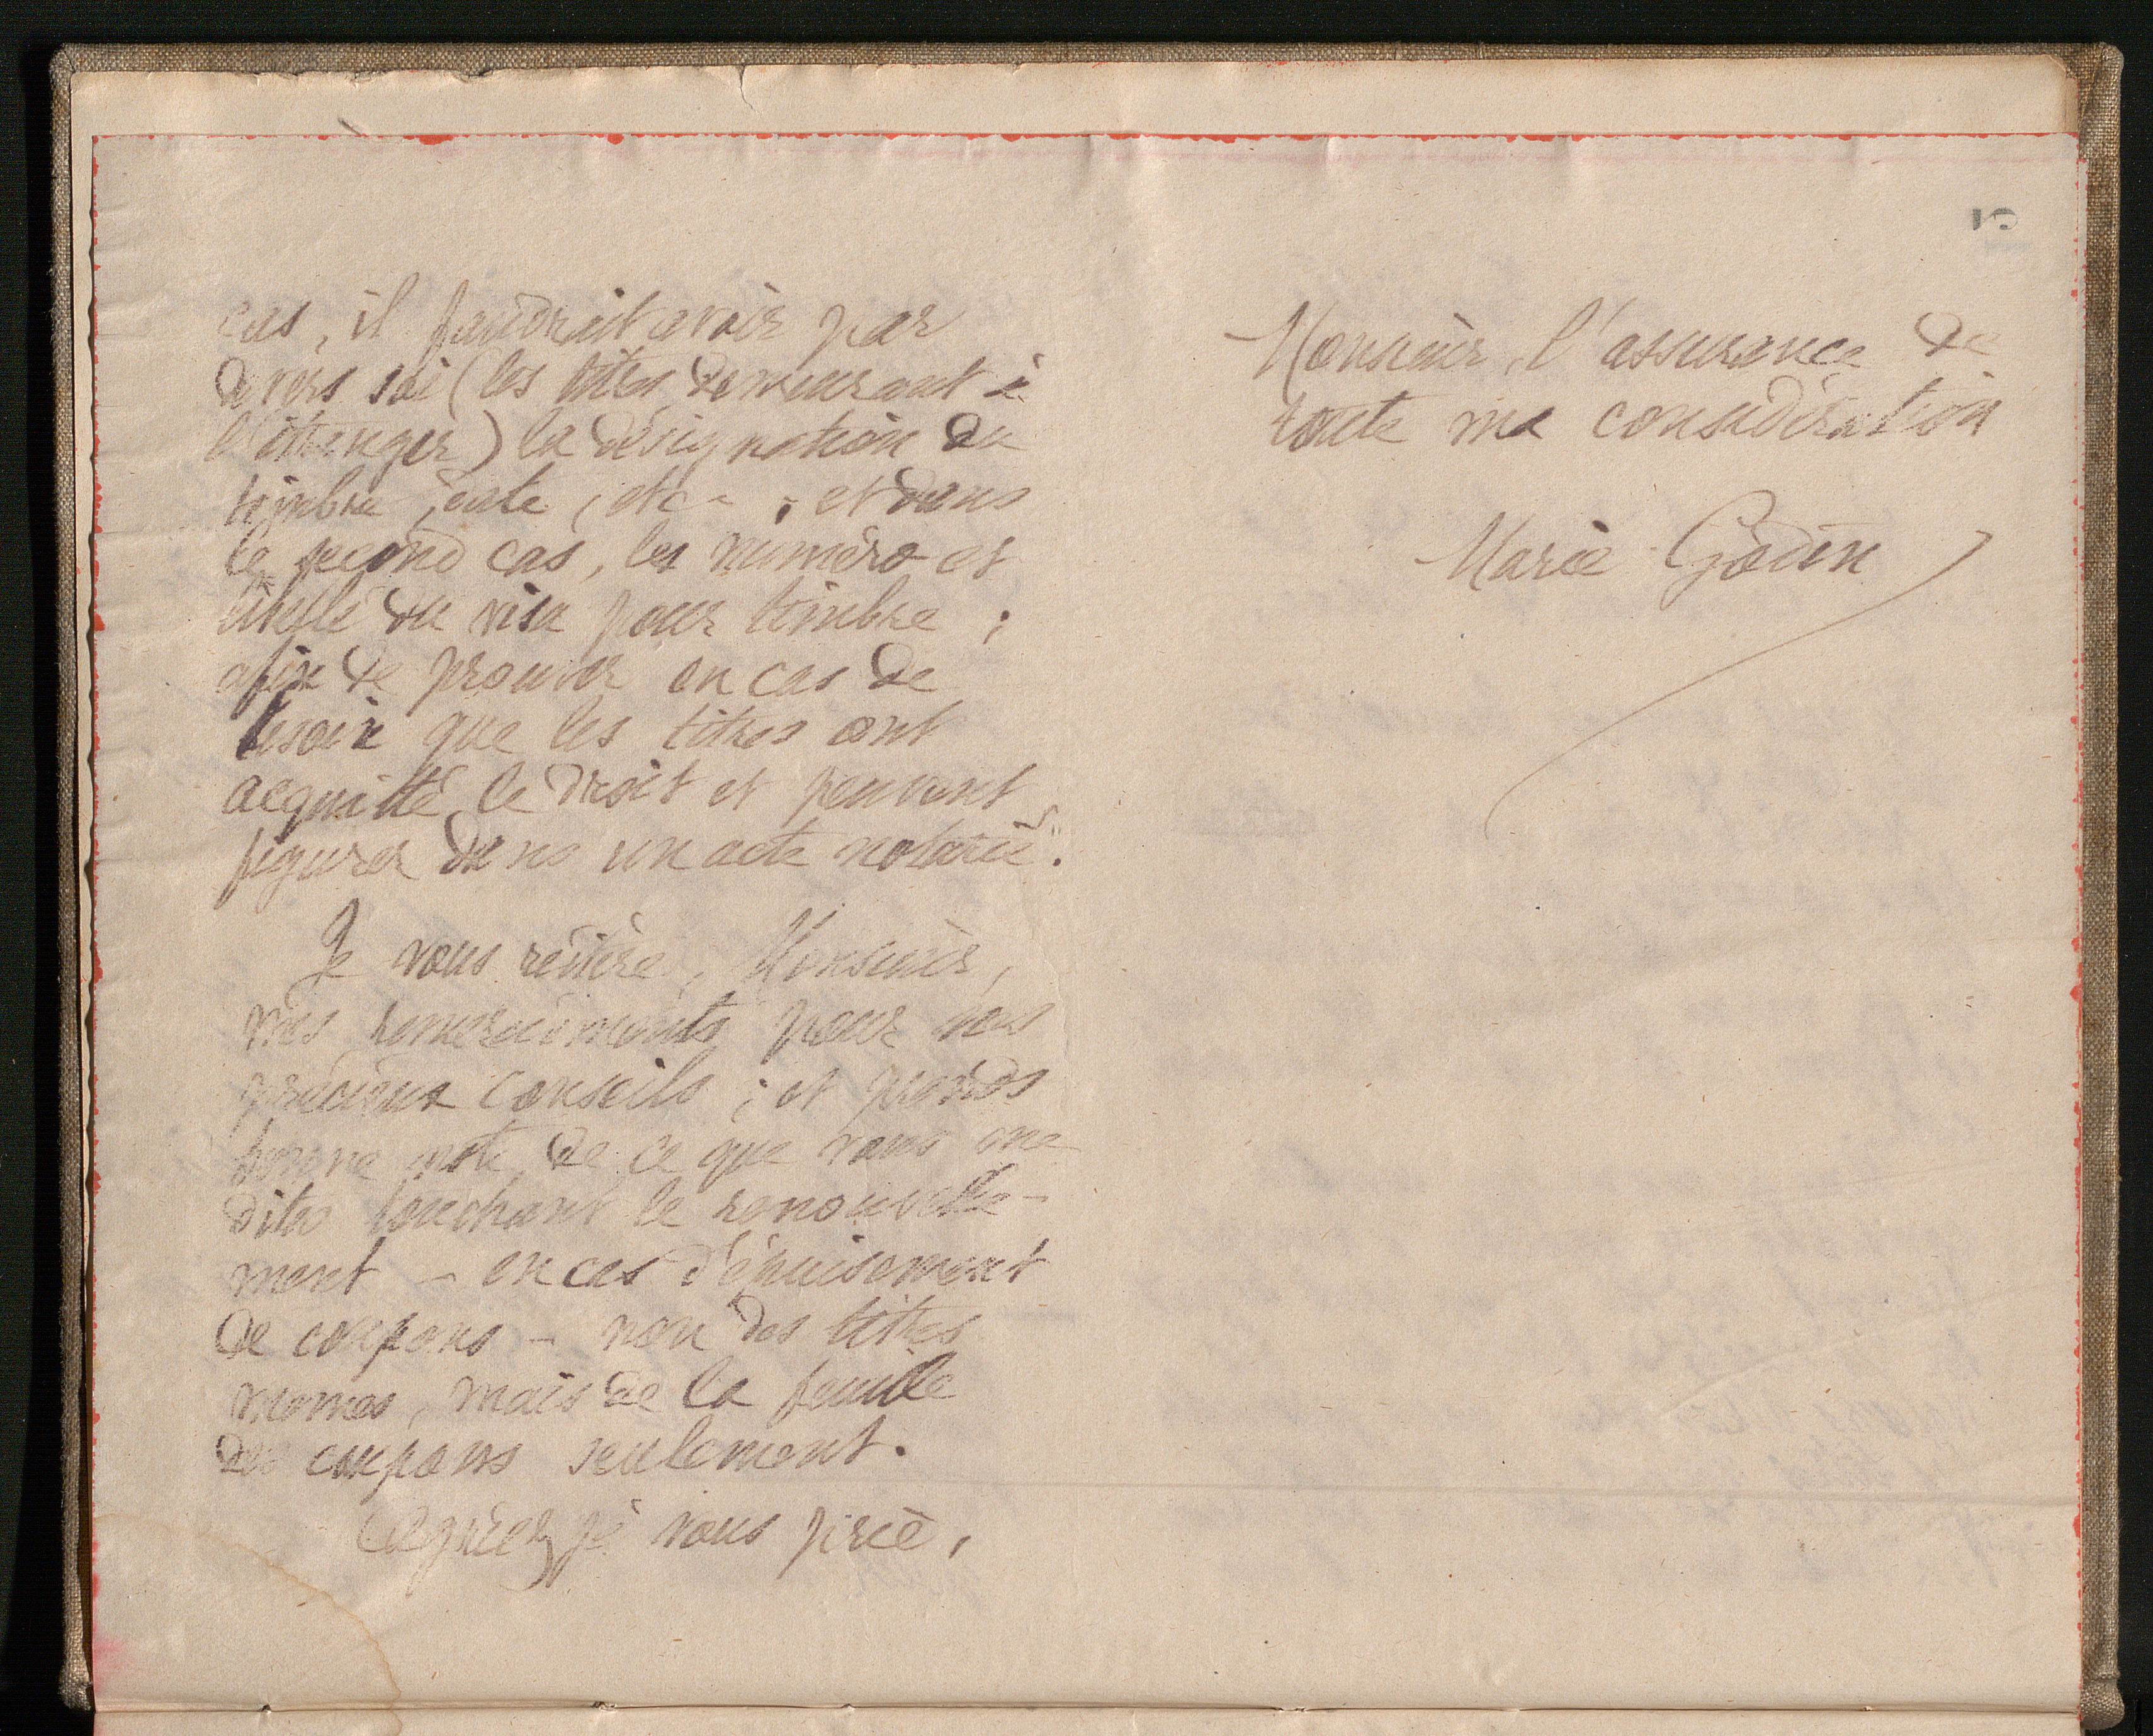 cas, il faudrait avoir par
devers soi (les titres demeurant à
l'étranger) la désignation du
timbre, date, etc. ; et dans
le second cas, les numéro et
libellé du visa pour timbre ;
afin de prouver en cas de
besoin que les titres ont
acquitté le droit et peuvent
figurer dans un acte notarié.
Je vous réitère, Monsieur,
mes remerciements pour vos
précieux conseils ; et prends
bonne note de ce que vous me
dites touchant le renouvelle-
ment — en cas d'épuisement
de coupons — non des titres
mêmes, mais de la feuille
des coupons seulement.
Agréez je vous prie,
5
Monsieur, l'assurance de
toute ma considération
Marie Godin